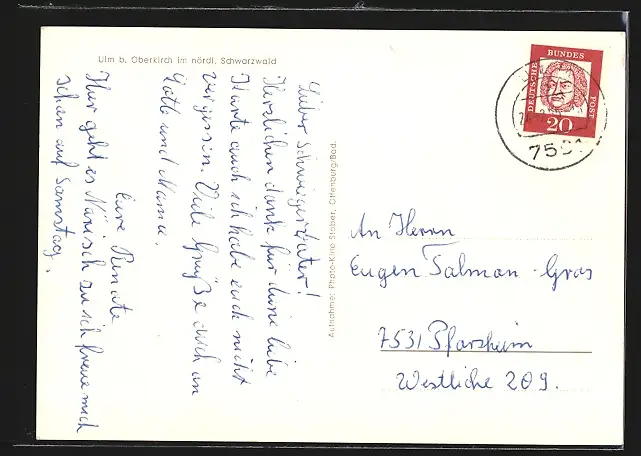 Ulm b. Oberkirch im nördl. Schwarzwald
Lieber Schwiegervater!
Herzlichen dank für deine liebe
Karte auch ich habe euch nicht
vergessen. Viele Grüße auch an
Gotte und Mama.
Eure Renate
Hier geht es Närrisch zu ich freue mich
schon auf Samstag.
Aufnahme: Photo-Kino Stober, Offenburg/Bad.
DEUTSCHE BUNDES POST
20
An Herrn
Eugen Salman Gros
7531 Pforzheim
Westliche 209.